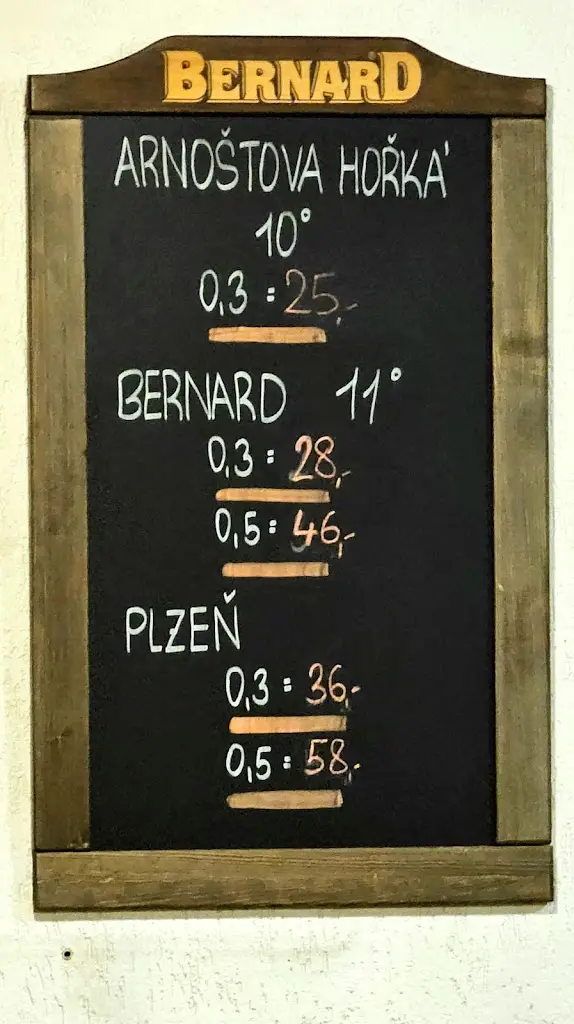 BERNARD
ARNOŠTOVA HOŘKÁ
10°
0,3 = 25,-
BERNARD 11°
0,3 = 28,-
0,5 = 46,-
PLZEŇ
0,3 = 36,-
0,5 = 58,-